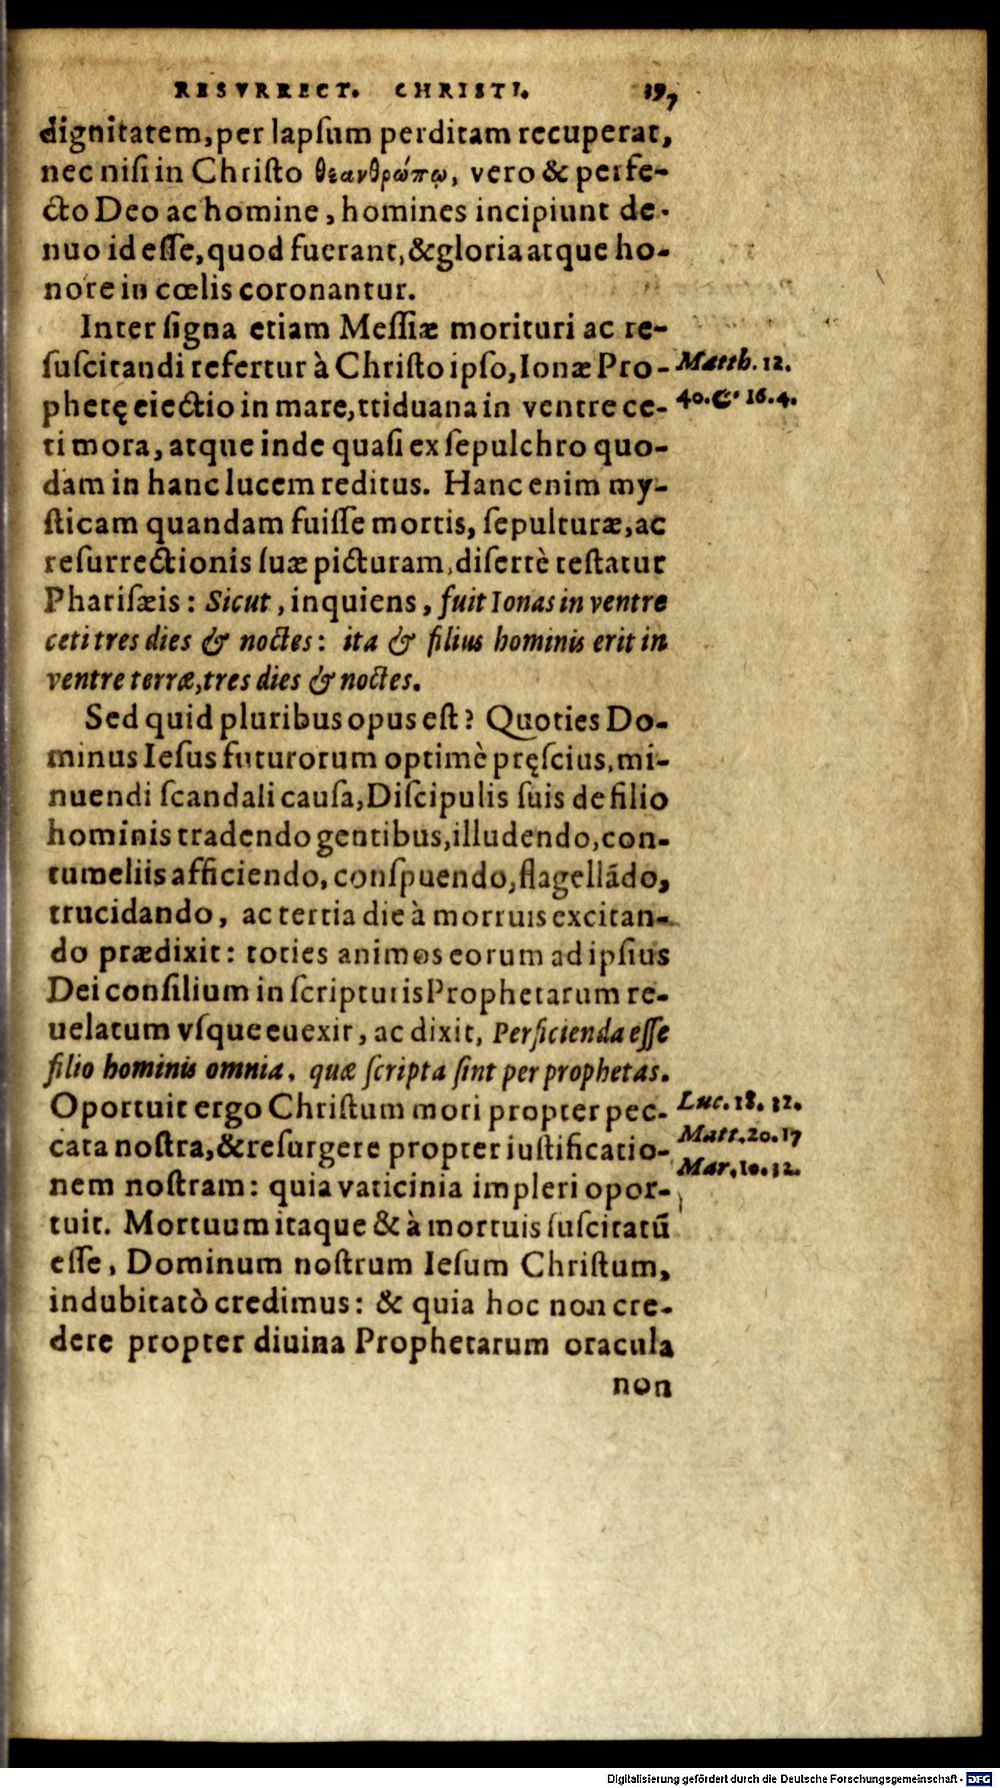 RESVRRECT. CHRISTI. 197
dignitatem, per lapſum perditam recuperat,
nec niſi in Chriſto θεανθρώπῳ, vero & perfe-
cto Deo ac homine, homines incipiunt de-
nuo id eſſe, quod fuerant, & gloria atque ho-
nore in cœlis coronantur.
Inter ſigna etiam Meſſiæ morituri ac re-
ſuſcitandi refertur à Chriſto ipſo, Ionæ Pro-
Matth. 12.
phetę eiectio in mare, triduana in ventre ce-
40. & 16. 4.
ti mora, atque inde quaſi ex ſepulchro quo-
dam in hanc lucem reditus. Hanc enim my-
ſticam quandam fuiſſe mortis, ſepulturæ, ac
reſurrectionis ſuæ picturam, diſertè teſtatur
Phariſæis: Sicut, inquiens, fuit Ionas in ventre
ceti tres dies & noctes: ita & filius hominis erit in
ventre terræ, tres dies & noctes.
Sed quid pluribus opus eſt? Quoties Do-
minus Ieſus futurorum optimè pręſcius, mi-
nuendi ſcandali cauſa, Diſcipulis ſuis de filio
hominis tradendo gentibus, illudendo, con-
tumeliis afficiendo, conſpuendo, flagellãdo,
trucidando, ac tertia die à mortuis excitan-
do prædixit: toties animos eorum ad ipſius
Dei conſilium in ſcripturis Prophetarum re-
uelatum vſque euexit, ac dixit, Perficienda eſſe
filio hominis omnia, quæ ſcripta ſint per prophetas.
Oportuit ergo Chriſtum mori propter pec-
Luc. 18. 32.
cata noſtra, & reſurgere propter iuſtificatio-
Matt. 20. 17
nem noſtram: quia vaticinia impleri opor-
Mar. 10. 32.
tuit. Mortuum itaque & à mortuis ſuſcitatũ
eſſe, Dominum noſtrum Ieſum Chriſtum,
indubitatò credimus: & quia hoc non cre-
dere propter diuina Prophetarum oracula
non
Digitalisierung gefördert durch die Deutsche Forschungsgemeinschaft - DFG